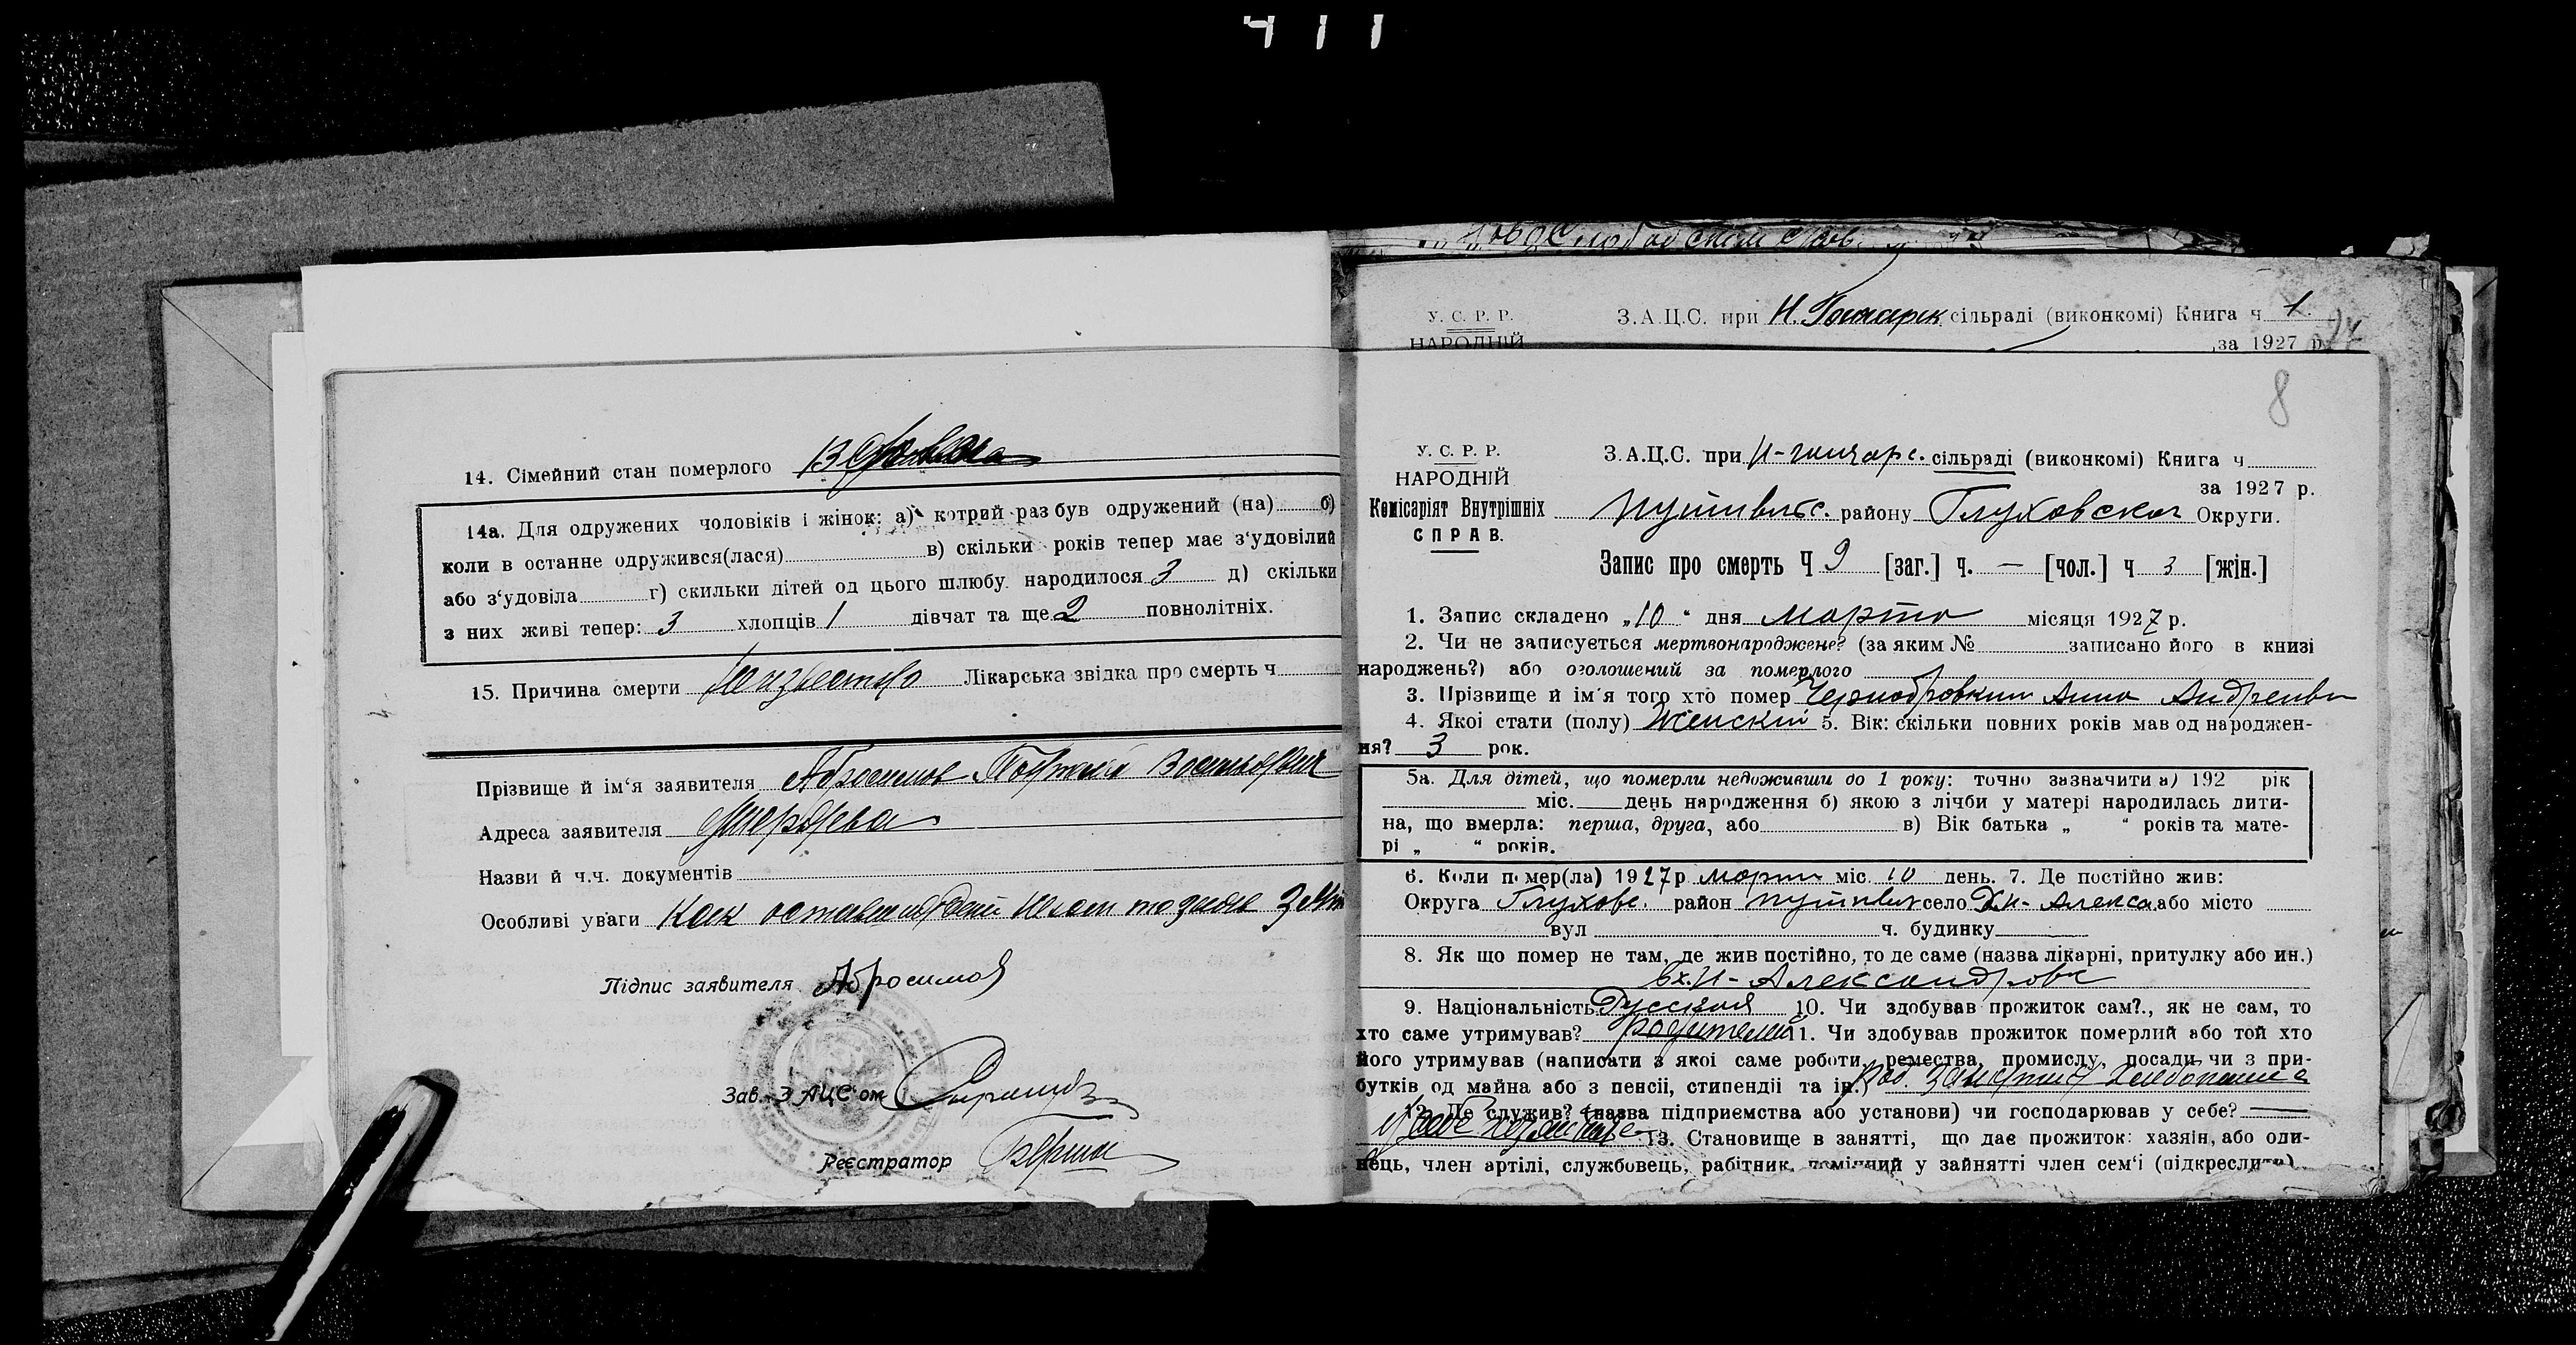 411
14. Сімейний стан померлого Вдова
14а. Для одружених чоловіків і жінок: а) котрий раз був одружений (на) б)
коли в останне одружився(лася) в) скільки років тепер має з'удовілий
або з'удовіла г) скильки дітей од цього шлюбу народилося 3 д) скільки
з них живі тепер: 3 хлопців 1 дівчат та ще 2 повнолітніх.
15. Причина смерти неизвестно Лікарська звідка про смерть ч
Прізвище й ім'я заявителя Абросимов
Адреса заявителя
Назви й ч.ч. документів
Особливі уваги Как
Підпис заявителя Абросимов
Зав. ЗАЦС'ом
Реєстратор
У. С. Р. Р. З.А.Ц.С. при Н. Гончарск сільраді (виконкомі) Книга ч 1.
НАРОДНІЙ за 1927 р.
8
У. С. Р. Р. З.А.Ц.С. при Н-гончарс. сільраді (виконкомі) Книга ч
НАРОДНІЙ за 1927 р.
Комісаріят Внутрішніх Путивльс. району Глуховской Округи.
СПРАВ.
Запис про смерть Ч 9 [заг.] ч. — [чол.] ч 3 [жін.]
1. Запис складено „10“ дня марта місяця 1927 р.
2. Чи не записується мертвонароджене? (за яким № записано його в книзі
народжень?) або оголошений за померлого
3. Прізвище й ім'я того хто помер Чернобровкин Анна Андреевн
4. Якоі стати (полу) Женский 5. Вік: скільки повних років мав од народжен-
ня? 3 рок.
5а. Для дітей, що померли недоживши до 1 року: точно зазначити а) 192 рік
міс. день народження б) якою з лічби у матері народилась дити-
на, що вмерла: перша, друга, або в) Вік батька „ “ років та мате-
рі „ “ років.
6. Коли помер(ла) 1927 р марта міс. 10 день. 7. Де постійно жив:
Округа Глухове. район путивл село Х Н- Алекса. або місто
вул ч. будинку
8. Як що помер не там, де жив постійно, то де саме (назва лікарні, притулку або ин.)
в х. Н- Александровк
9. Національність Русская 10. Чи здобував прожиток сам?., як не сам, то
хто саме утримував? родители 11. Чи здобував прожиток померлий або той хто
його утримував (написати з якоі саме роботи, ремества, промислу, посади чи з при-
бутків од майна або з пенсіі, стипендіі та ін.)
12. Де служив? (назва підприемства або установи) чи господарював у себе? —
13. Становище в занятті, що дає прожиток: хазяін, або оди-
нець, член артілі, службовець, рабітник, помічний у зайнятті член сем'і (підкреслити)